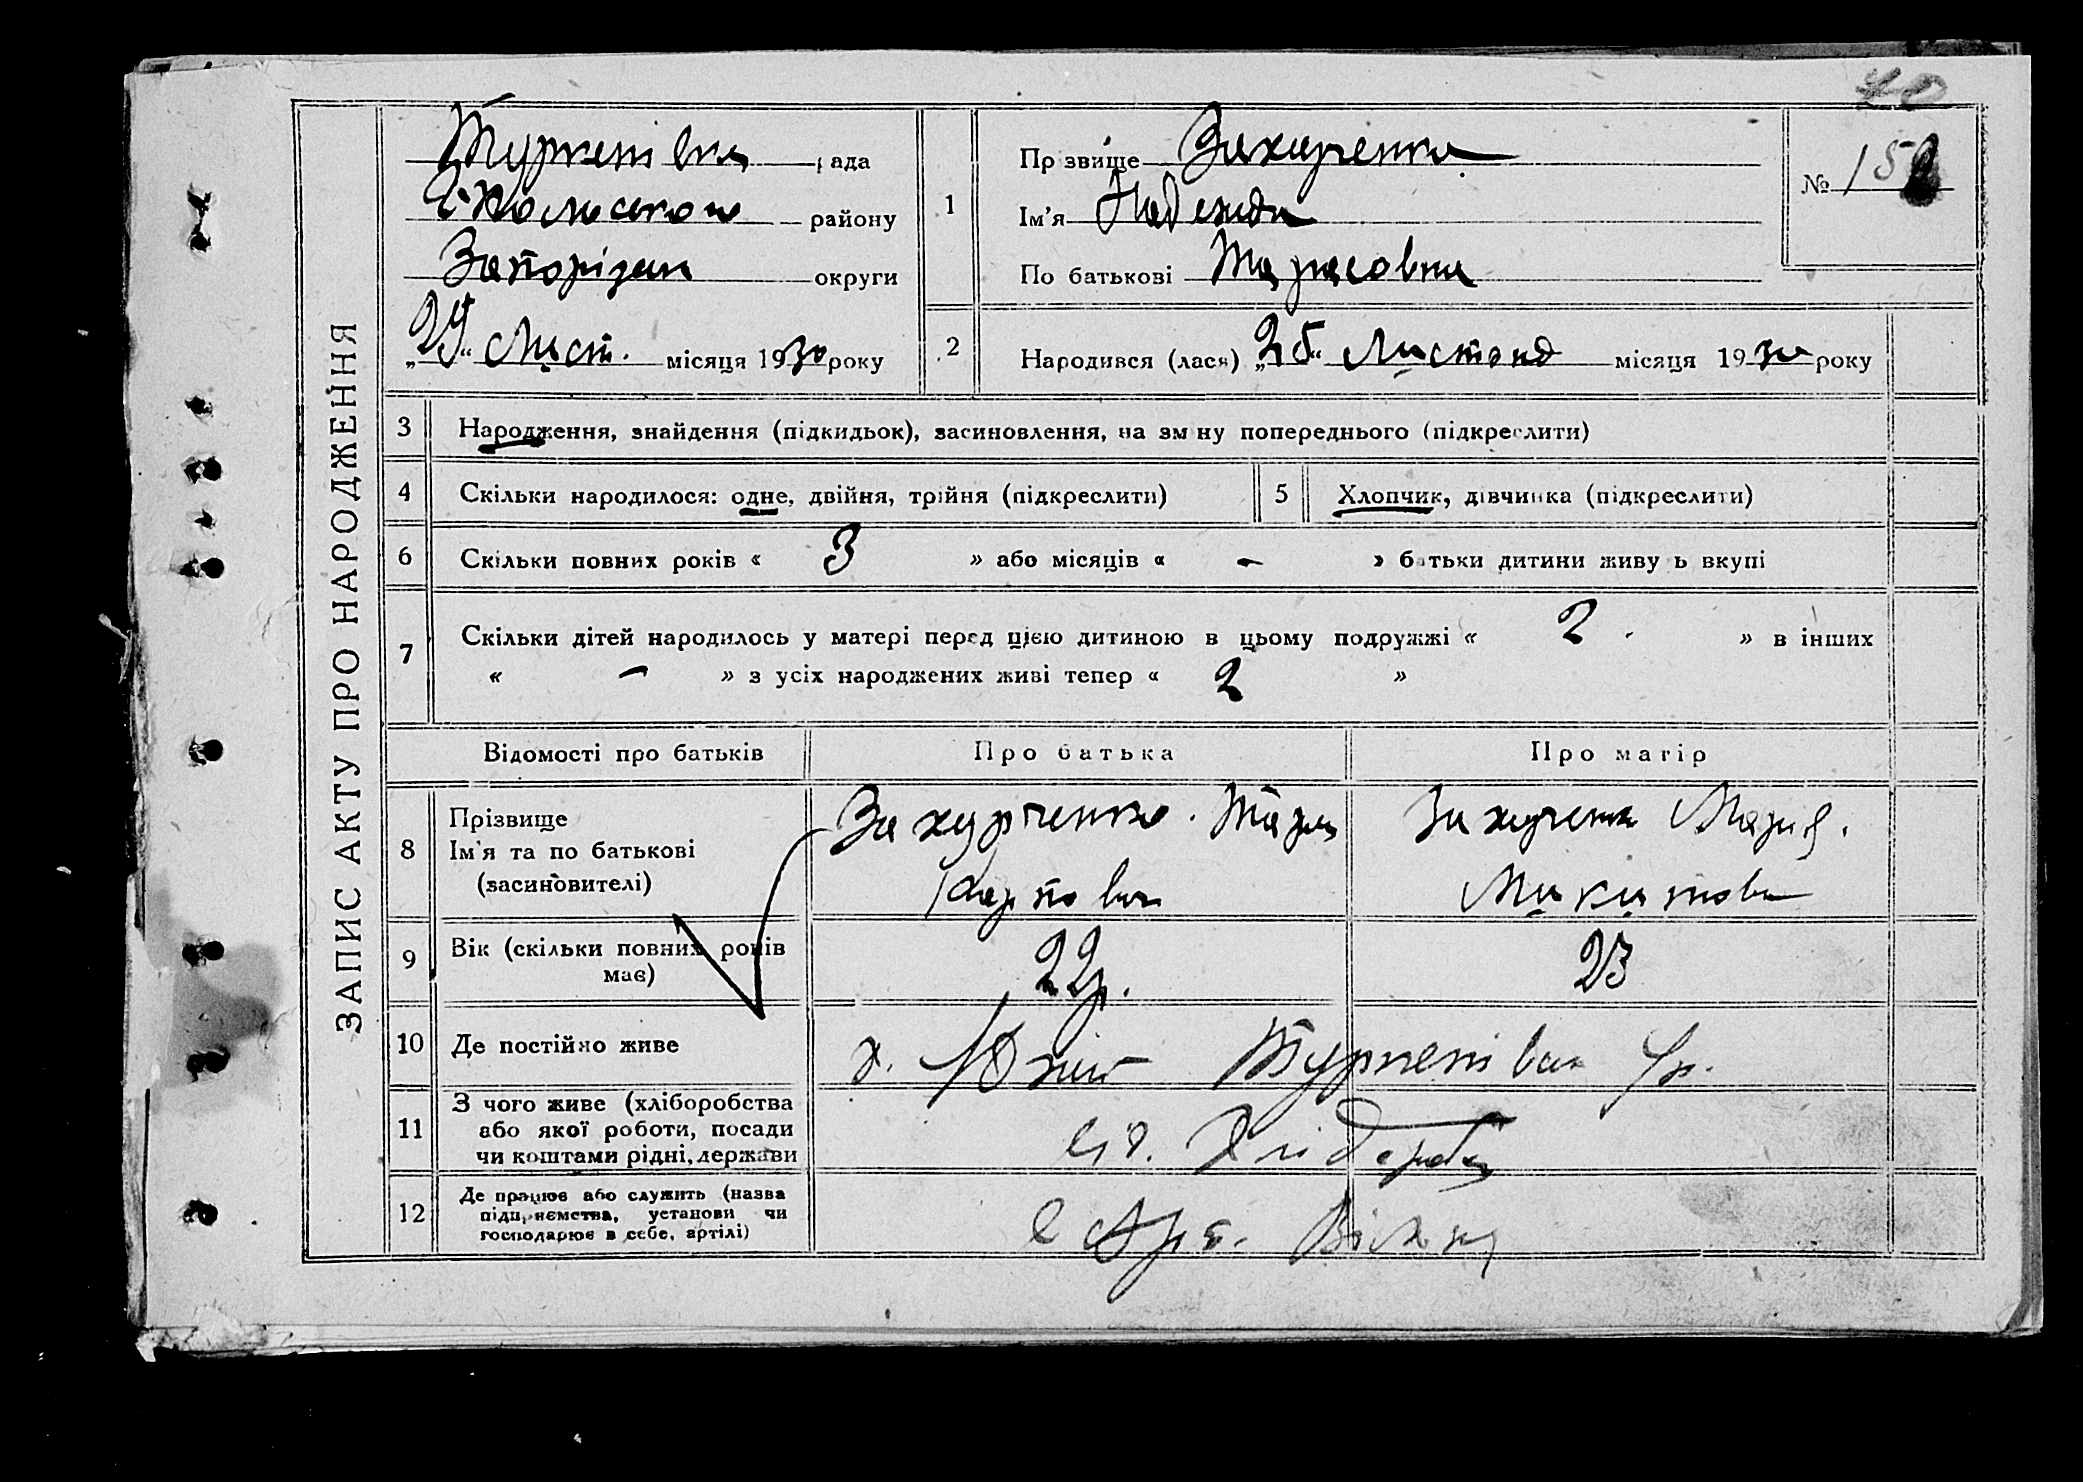 40
ЗАПИС АКТУ ПРО НАРОДЖЕННЯ
Туркенівка рада
району
Запорізька округи
„29“ Лист. місяця 1930 року
1
Прізвище Захарченко
Ім'я Надежда
По батькові Тарасовна
№ 15
2 Народився (лася) „25“ Листопад місяця 1930 року
3 Народження, знайдення (підкидьок), засиновлення, на зміну попереднього (підкреслити)
4 Скільки народилося: одне, двійня, трійня (підкреслити) 5 Хлопчик, дівчинка (підкреслити)
6 Скільки повних років « 3 » або місяців « – » батьки дитини живуть вкупі
7 Скільки дітей народилось у матері перед цією дитиною в цьому подружжі « 2 » в інших
« – » з усіх народжених живі тепер « 2 »
Відомості про батьків Про батька Про матір
8 Прізвище
Ім'я та по батькові
(засиновителі)
Захарченко Тарас
Карпович
Захарченко Мария
Микитовн
9 Вік (скільки повних років
має)
22р. 23
10 Де постійно живе х. Туркенівка
11 З чого живе (хліборобства
або якої роботи, посади
чи коштами рідні, держави
Хлібороб
12 Де працює або служить (назва
підприємства, установи чи
господарює в себе, артілі)
Арт.